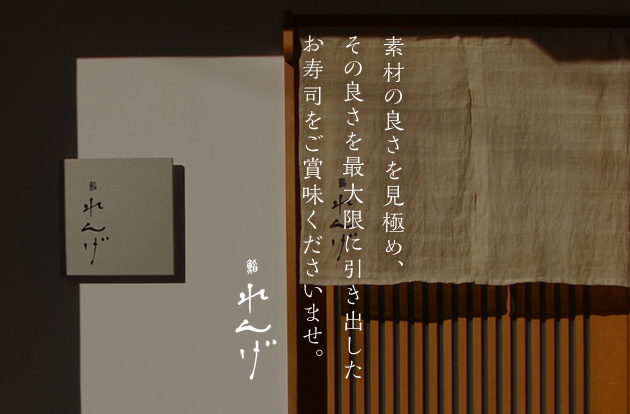 素材の良さを見極め、
その良さを最大限に引き出した
お寿司をご賞味くださいませ。
鮨 れんげ
鮨 れんげ
鮨 れんげ